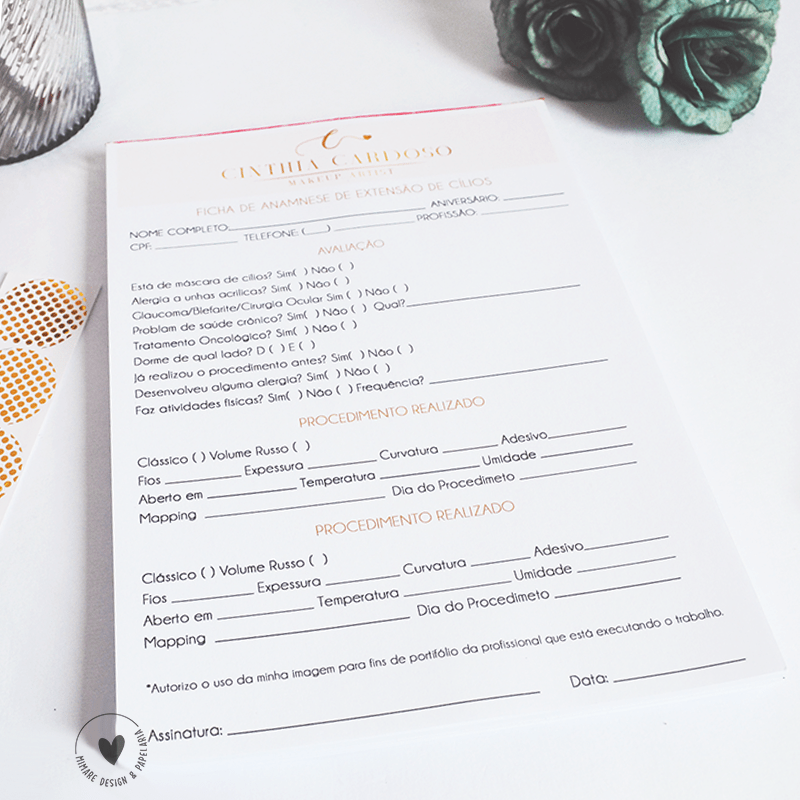 CINTHIA CARDOSO
MAKEUP ARTIST
FICHA DE ANAMNESE DE EXTENSÃO DE CÍLIOS
NOME COMPLETO:____________ ANIVERSÁRIO: ________
CPF: ____________ TELEFONE: (____) ____________ PROFISSÃO: ____________
AVALIAÇÃO
Está de máscara de cílios? Sim( ) Não ( )
Alergia a unhas acrílicas? Sim( ) Não ( )
Glaucoma/Blefarite/Cirurgia Ocular Sim ( ) Não ( )
Problam de saúde crônico? Sim( ) Não ( ) Qual?____________
Tratamento Oncológico? Sim( ) Não ( )
Dorme de qual lado? D ( ) E ( )
Já realizou o procedimento antes? Sim( ) Não ( )
Desenvolveu alguma alergia? Sim( ) Não ( )
Faz atividades físicas? Sim( ) Não ( ) Frequência? ____________
PROCEDIMENTO REALIZADO
Clássico ( ) Volume Russo ( )
Fios ____________ Expessura ____________ Curvatura ________ Adesivo____________
Aberto em ____________ Temperatura ____________ Umidade ____________
Mapping ____________ Dia do Procedimeto ____________
PROCEDIMENTO REALIZADO
Clássico ( ) Volume Russo ( )
Fios ____________ Expessura ____________ Curvatura ________ Adesivo____________
Aberto em ____________ Temperatura ____________ Umidade ____________
Mapping ____________ Dia do Procedimeto ____________
*Autorizo o uso da minha imagem para fins de portifólio da profissional que está executando o trabalho.
Assinatura: ____________ Data: ____________
MIMARE DESIGN & PAPELARIA